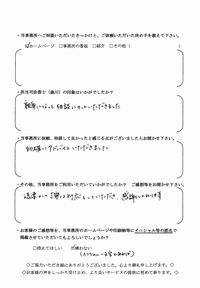 ・当事務所へご相談いただいたきっかけと、ご依頼いただいた決め手を教えて下さい。
☑ホームページ □事務所の看板 □紹介 □その他（ ）
・担当司法書士（ ）の印象はいかがでしたか？
親身になって相談にのっていただきました
・当事務所に依頼、相談して良かったと感じる点がございましたらお聞かせ下さい。
的確にアドバイスいただきました
・その他、当事務所をご利用いただいていかがでしたか？ ご感想等をお聞かせ下さい。
迅速かつ 対応をしていただき、感謝しております
お客様のご感想等を、当事務所のホームページや印刷物等にイニシャル等の匿名で
掲載させていただいてもよろしいでしょうか？
□控えてほしい ☑構わない
（イニシャル
◇ご協力いただき誠にありがとうございました。心より御礼申し上げます。◇
◇お客様の声をしっかり受け止め、より良いサービスの提供に努めて参ります。◇